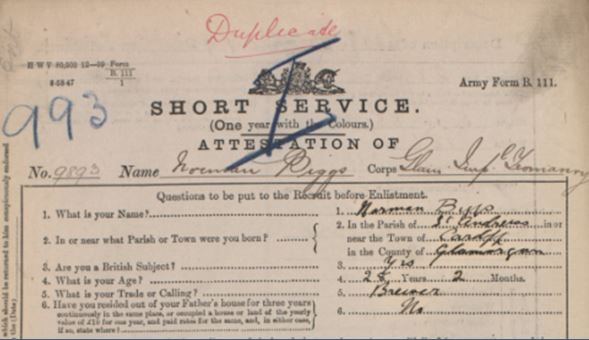 Duplicate
H W V 80,000 12—99 Form
B. 111
8-58-47 1
Army Form B. 111.
993
SHORT SERVICE.
(One year with the Colours.)
ATTESTATION OF
No. 9893 Name Norman Biggs Corps Glam. Imp. Yeomanry
Questions to be put to the Recruit before Enlistment.
1. What is your Name? 1. Norman Biggs
2. In or near what Parish or Town were you born? 2. In the Parish of St Andrews in or
near the Town of Cardiff
in the County of Glamorgan
3. Are you a British Subject? 3. Yes
4. What is your Age? 4. Years 2 Months.
5. What is your Trade or Calling? 5. Brewer
6. Have you resided out of your Father's house for three years 6. No
continuously in the same place, or occupied a house or land of the yearly
value of £10 for one year, and paid rates for the same, and, in either case,
if so, state where?
which should be returned to him completely endorsed
(Date)